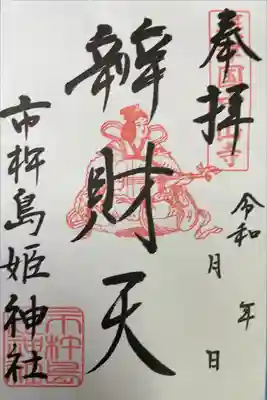 奉拝
令和 年 月 日
辨財天
市杵島姫神社
市杵島